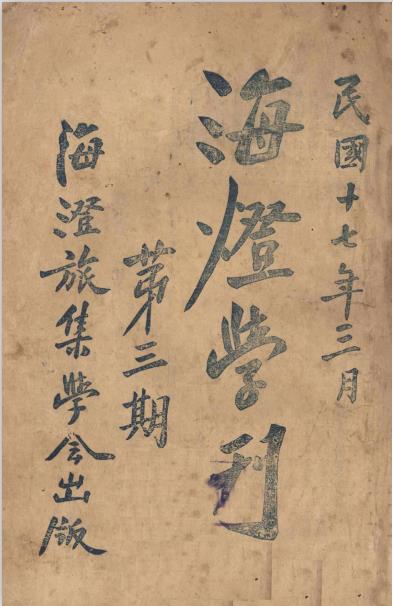 民國十七年三月
海燈學刊
第三期
海澄旅集學会出版